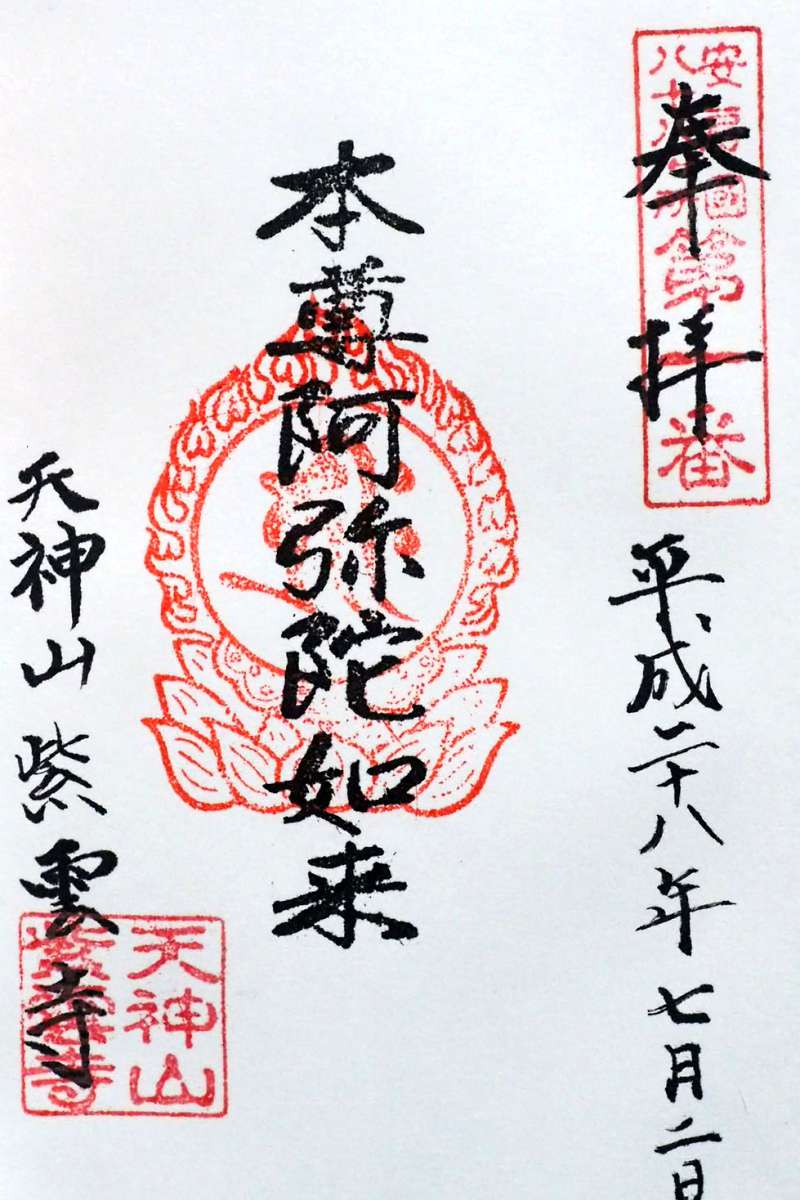 奉拝
安 國
八十
第 番
平成二十八年七月二日
本尊阿弥陀如来
天神山紫雲寺
天神山
紫雲寺